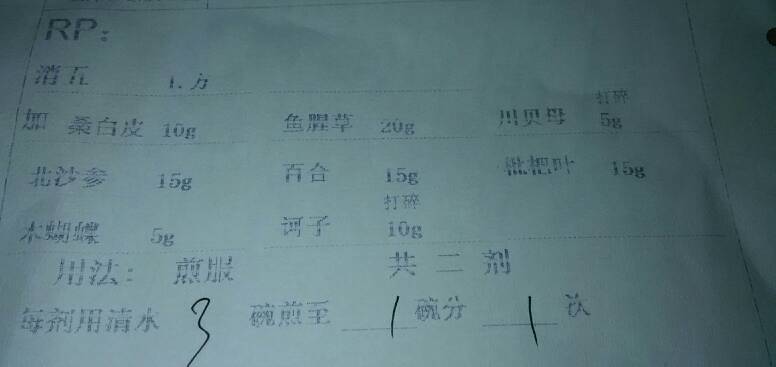 RP：
消瓦 1.方
打碎
加 桑白皮 10g 鱼腥草 20g 川贝母 5g
北沙参 15g 百合 15g 枇杷叶 15g
打碎
木蝴蝶 5g 诃子 10g
用法： 煎服 共二剂
每剂用清水 3 碗煎至 1 碗分 1 次